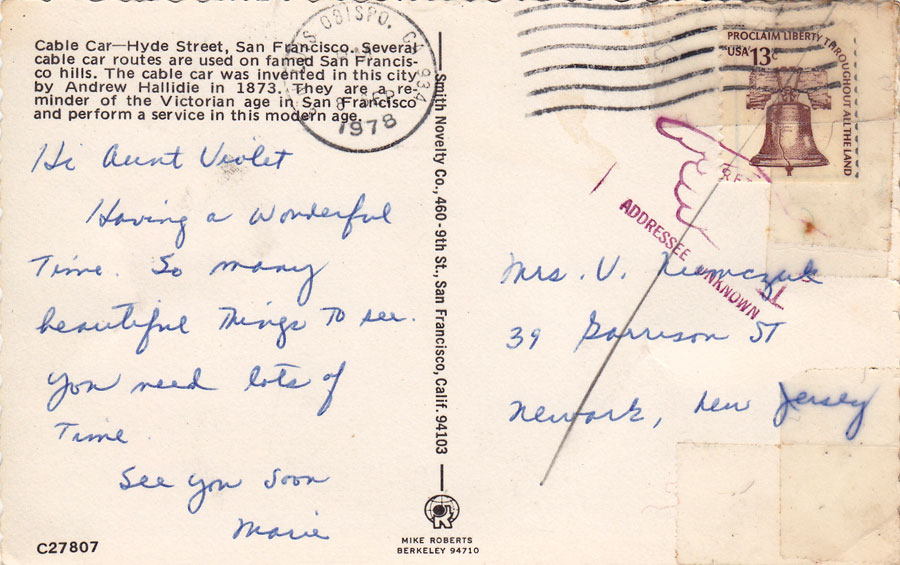 Cable Car—Hyde Street, San Francisco. Several
cable car routes are used on famed San Francis-
co hills. The cable car was invented in this city
by Andrew Hallidie in 1873. They are a re-
minder of the Victorian age in San Francisco
and perform a service in this modern age.
OBISPO, CA 934
SEP
1978
Hi Aunt Violet
Having a wonderful
Time. So many
beautiful Things To see.
You need lots of
Time.
See you soon
Marie
C27807
Smith Novelty Co., 460 - 9th St., San Francisco, Calif. 94103
MIKE ROBERTS
BERKELEY 94710
PROCLAIM LIBERTY THROUGHOUT ALL THE LAND
USA 13c
ADDRESSEE UNKNOWN
Mrs. V.
39 Garrison ST
Newark, New Jersey